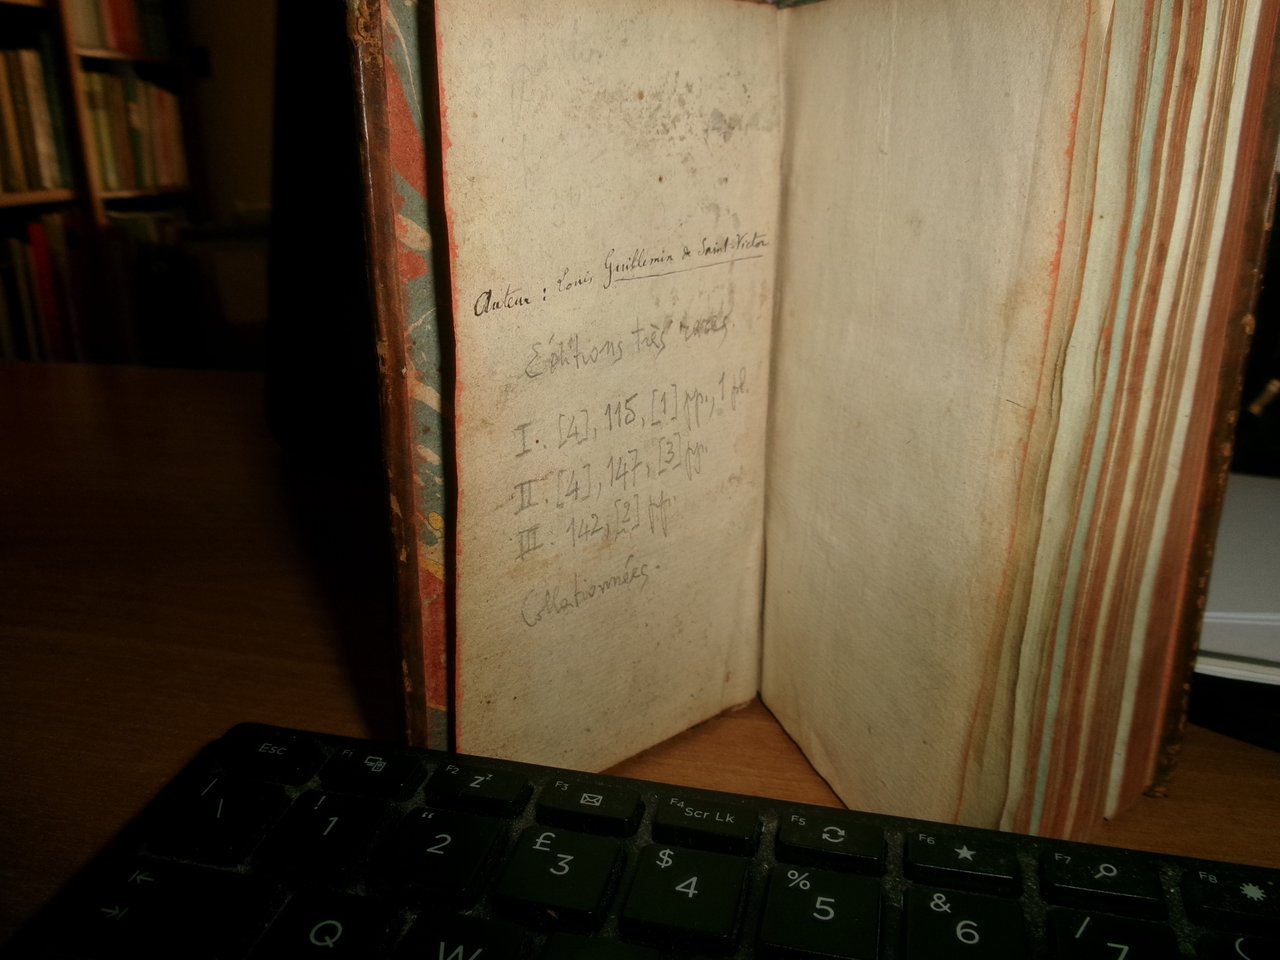 Auteur : Louis Guillemin de Saint-Victor
Éditions très rares.
I. [4], 115, [1] pp., 1 pl.
II. [4], 147, [3] pp.
III. 142, [2] pp.
Collationnées.
Esc F1 F2 Zz F3 F4 Scr Lk F5 F6 F7 F8
\ ! 1 “ 2 £ 3 $ 4 % 5 & 6 / 7 (
Q W